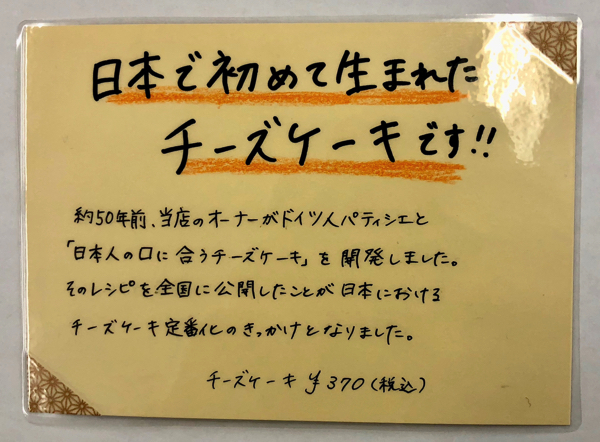 日本で初めて生まれた
チーズケーキです!!
約50年前、当店のオーナーがドイツ人パティシエと
「日本人の口に合うチーズケーキ」を開発しました。
そのレシピを全国に公開したことが日本における
チーズケーキ定番化のきっかけとなりました。
チーズケーキ ¥370(税込)